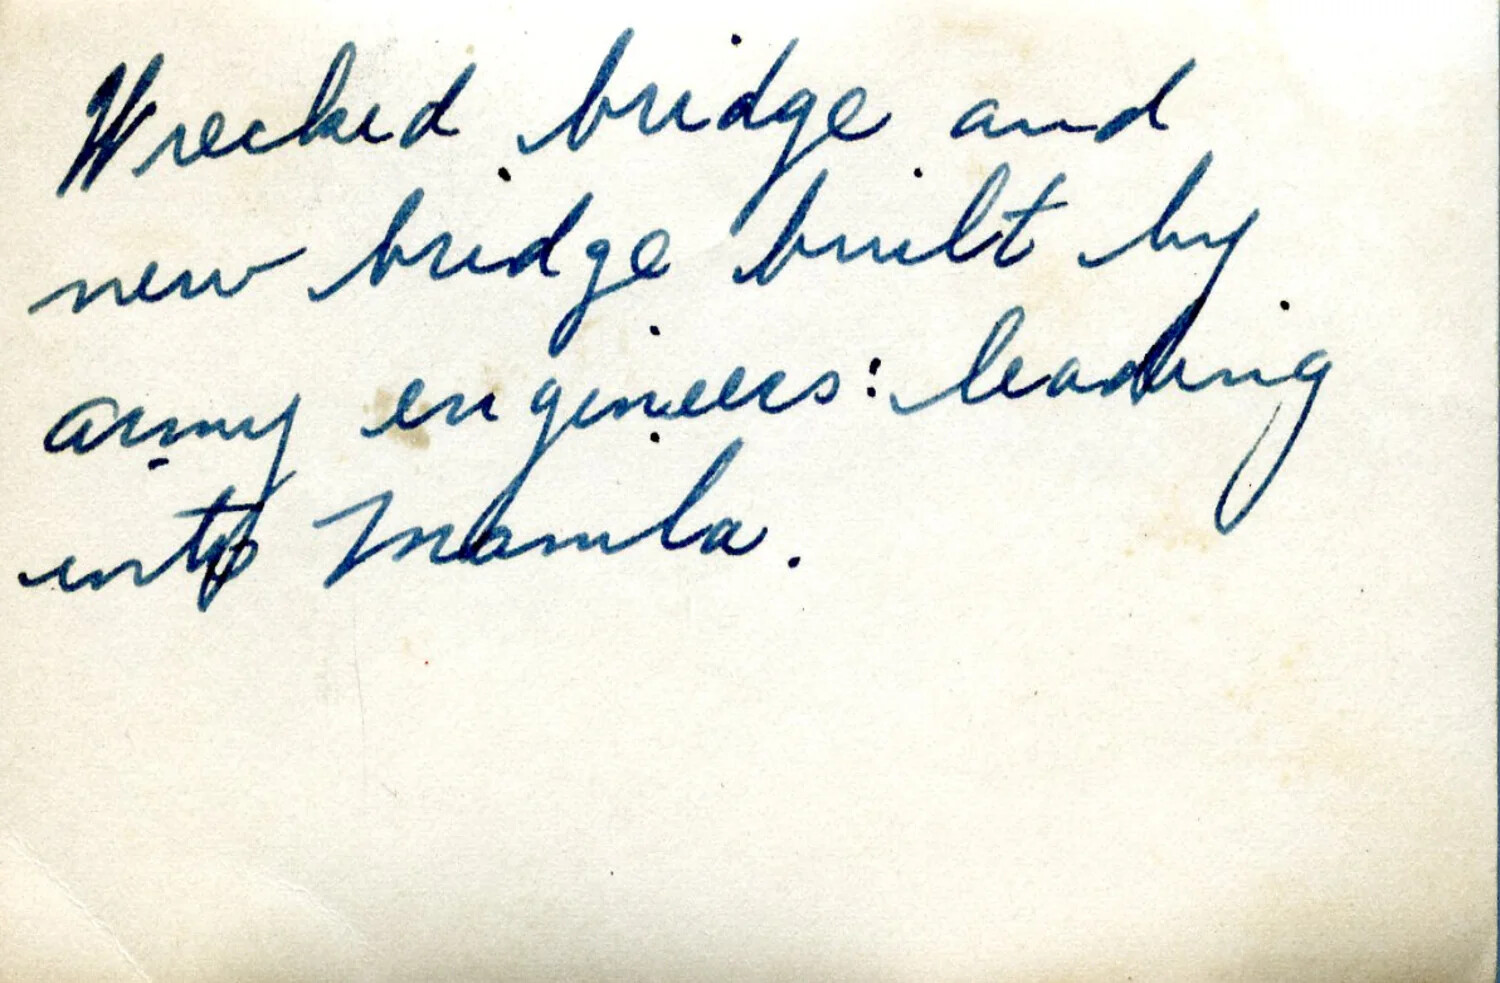 Wrecked bridge and
new bridge built by
army engineers: leading
into Manila.